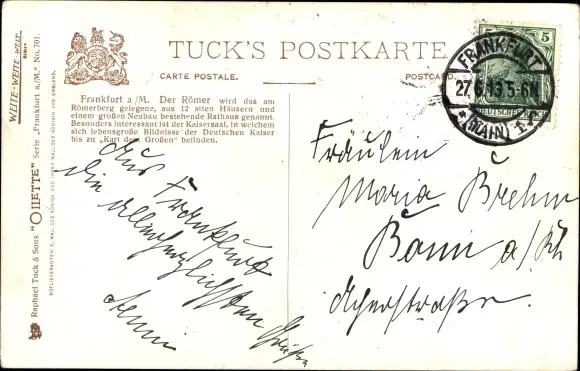 WHITE-WEITE-WELT
Raphael Tuck & Sons' "OILETTE" Serie „Frankfurt a/M." No. 701.
HOFLIEFERANTEN S. MAJ. DES KÖNIGS UND IHRER MAJ. DER KÖNIGIN VON ENGLAND.
TUCK'S POSTKARTE
CARTE POSTALE. POSTCARD.
Frankfurt a/M. Der Römer wird das am
Römerberg gelegene, aus 12 alten Häusern und
einem großen Neubau bestehende Rathaus genannt.
Besonders interessant ist der Kaisersaal, in welchem
sich lebensgroße Bildnisse der Deutschen Kaiser
bis zu „Karl dem Großen" befinden.
5 5
FRANKFURT
27.6.13.5-6N.
(MAIN) 1
DEUTSCHES REICH
Aus Frankfurt
die allerherzlichsten
Grüße
Fräulein
Maria Brehm
Bonn a/Rh